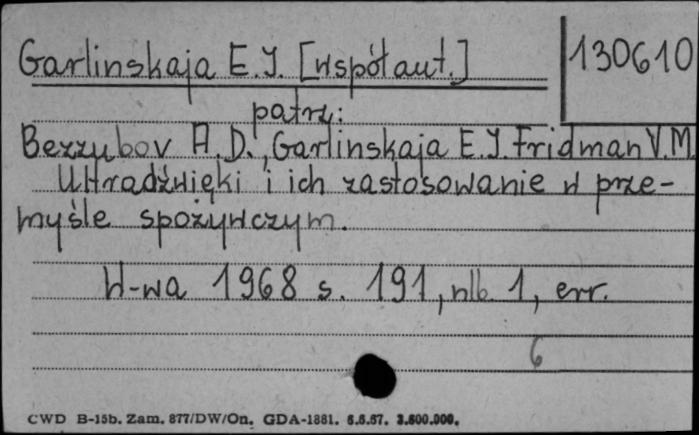 Garlinskaja E.I. [współaut.]
130610
patrz:
Bezzubov A.D., Garlinskaja E.I. Fridman V.M.
Ultradźwięki i ich zastosowanie w prze-
myśle spożywczym.
W-wa 1968 s. 191, nlb. 1, err.
6
CWD B-15b. Zam. 877/DW/On. GDA-1881. 6.6.67. 3.600.000.